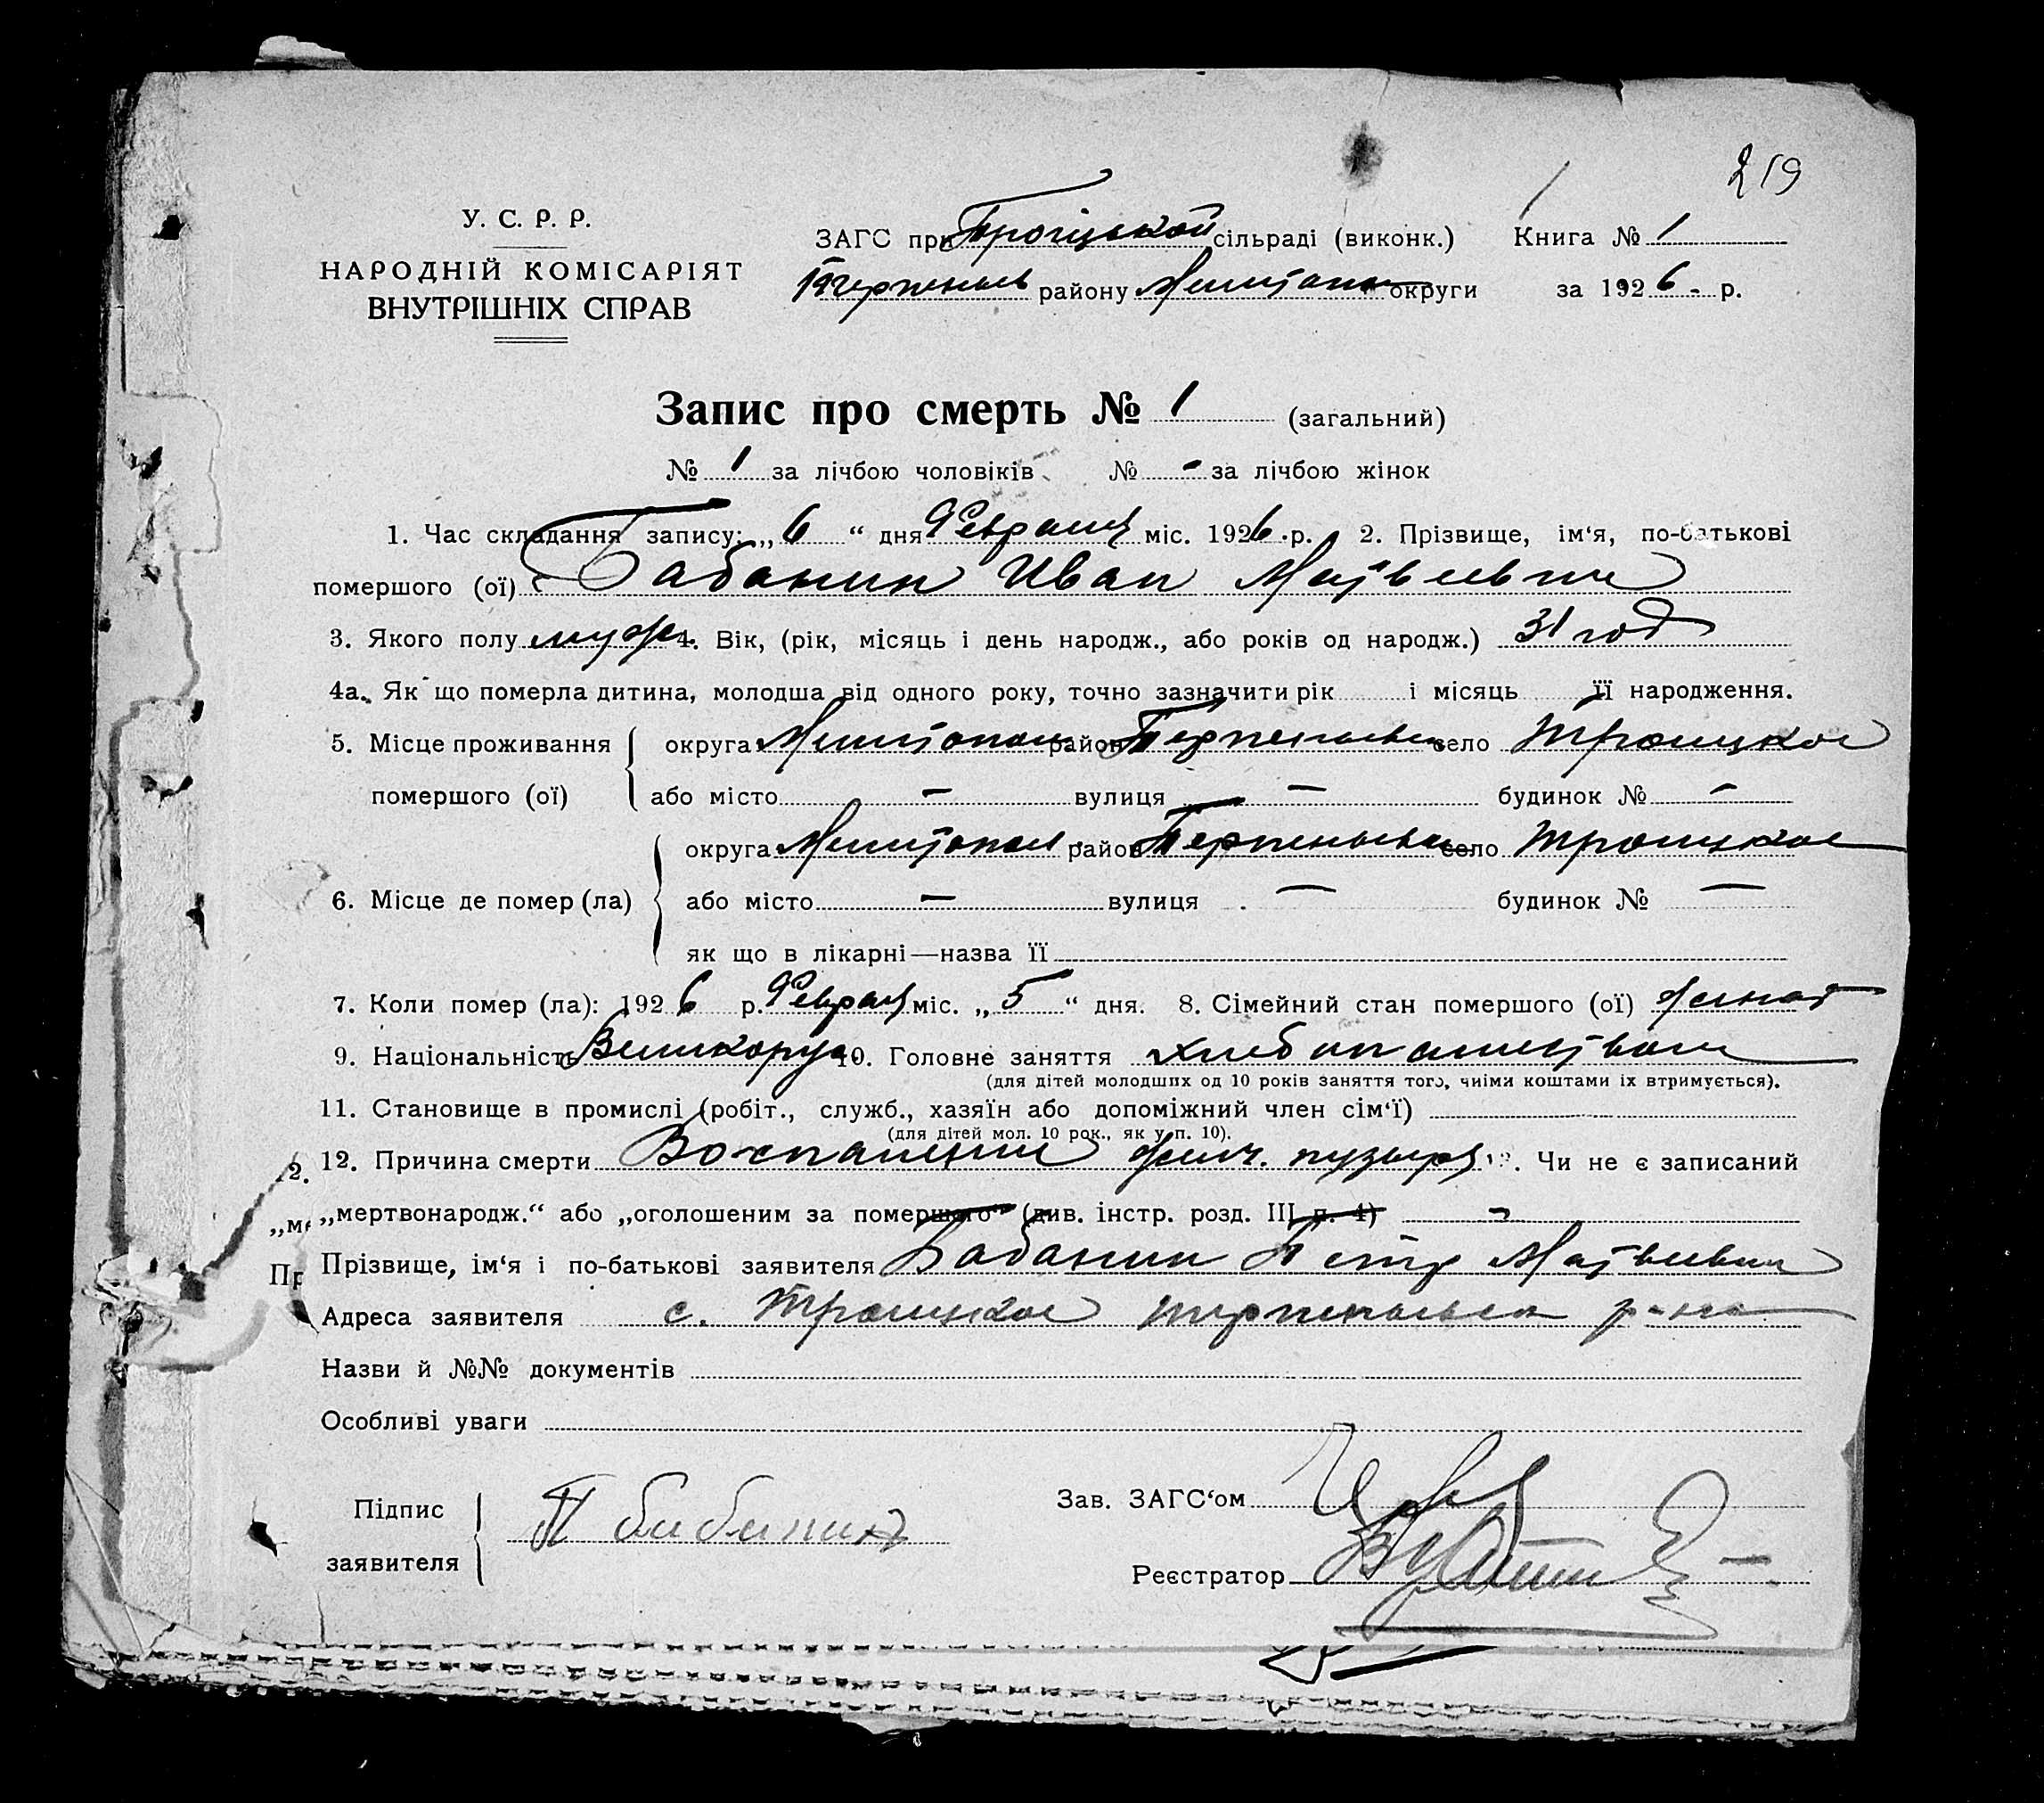 219
У. С. Р. Р.
НАРОДНІЙ КОМІСАРІЯТ
ВНУТРІШНІХ СПРАВ
ЗАГС при Троіцькой сільраді (виконк.) Книга № 1
Терпеньев району Мелитопол округи за 1926 р.
Запис про смерть № 1 (загальний)
№ 1 за лічбою чоловіків № - за лічбою жінок
1. Час складання запису: „6“ дня Февраля міс. 1926 р. 2. Прізвище, ім‘я, по-батькові
помершого (ої) Бабанин Иван Матвеевич
3. Якого полу муж. 4. Вік, (рік, місяць і день народж., або років од народж.) 31 год
4а. Як що померла дитина, молодша від одного року, точно зазначити рік і місяць її народження.
5. Місце проживання округа Мелитопол район Терпеньевск село Троицкое
помершого (ої) або місто - вулиця - будинок № -
округа Мелитопол район Терпеньевск село Троицкое
6. Місце де помер (ла) або місто - вулиця - будинок № -
як що в лікарні—назва її
7. Коли помер (ла): 1926 р. Февраля міс. „5“ дня. 8. Сімейний стан помершого (ої) женат
9. Національність Великорус 10. Головне заняття хлебопашеством
(для дітей молодших од 10 років заняття того, чиїми коштами їх втримується).
11. Становище в промислі (робіт., служб., хазяїн або допоміжний член сім‘ї)
(для дітей мол. 10 рок., як у п. 10).
12. 12. Причина смерти Воспаление желч. пузыря 13. Чи не є записаний
„ме „мертвонародж.“ або „оголошеним за помершого“ (див. інстр. розд. III п. 4) -
Пр Прізвище, ім‘я і по-батькові заявителя Бабанин Петр Матвеевич
Адреса заявителя с. Троицкое терпеньевск р-на
Назви й №№ документів
Особливі уваги
Підпис
заявителя П Бабанин
Зав. ЗАГС‘ом
Реєстратор